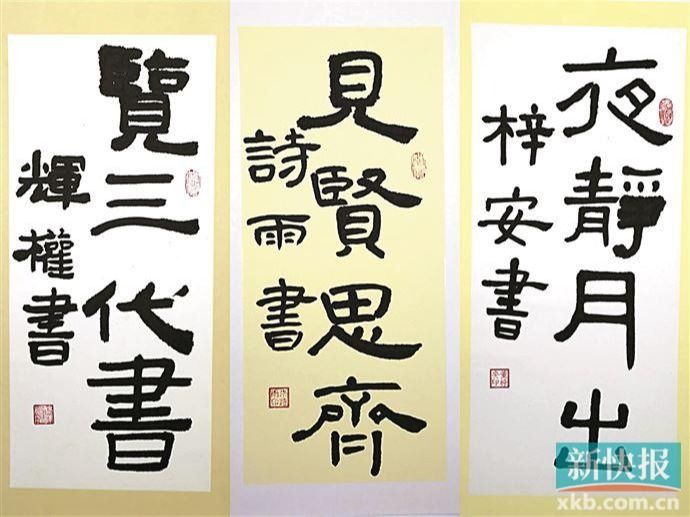 覽三代書
輝權書
見賢思齊
詩雨書
夜靜月出
梓安書
新快报
xkb.com.cn